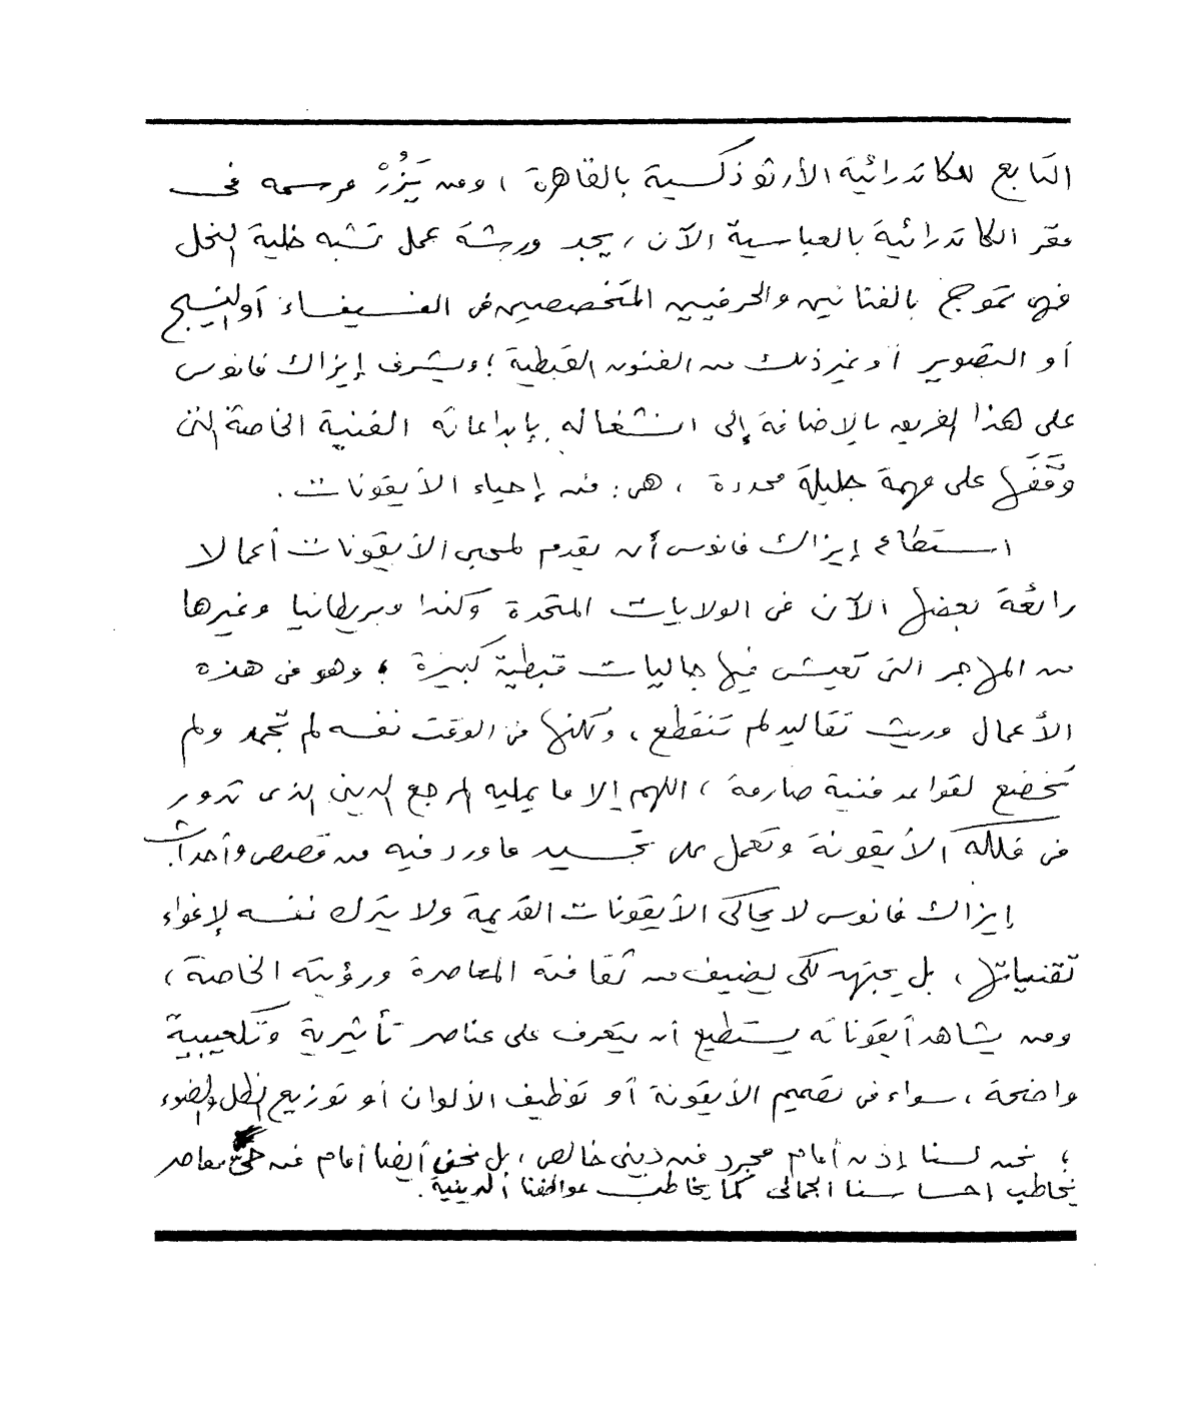 التابع للكاتدرائية الأرثوذكسية بالقاهرة ، ومن يَزُرْ مرسمه فى
مقر الكاتدرائية بالعباسية الآن ، يجد ورشة عمل تشبه خلية النحل
فهى تموج بالفنانين والحرفيين المتخصصين فى الفسيفساء أو النسيج
أو التصوير أو غير ذلك من الفنون القبطية ؛ ويشرف إيزاك فانوس
على هذا الفريق بالإضافة إلى انشغاله بإبداعاته الفنية الخاصة التى
وَقَفَها على مهمة جليلة محددة ، هى : فن إحياء الأيقونات .
استطاع إيزاك فانوس أن يقدم لمحبى الأيقونات أعمالا
رائعة بعضها الآن فى الولايات المتحدة وكندا وبريطانيا وغيرها
من المهاجر التى تعيش فيها جاليات قبطية كبيرة ؛ وهو فى هذه
الأعمال وريث تقاليد لم تنقطع ، ولكنها فى الوقت نفسه لم تجمد ولم
تخضع لقواعد فنية صارمة ، اللهم إلا ما يمليه المرجع الدينى الذى تدور
فى فلكه الأيقونة وتعمل على تجسيد ما ورد فيه من قصص وأحداث .
إيزاك فانوس لا يحاكى الأيقونات القديمة ولا يترك نفسه لإغواء
تقنياتها ، بل يجتهد لكى يضيف من ثقافته المعاصرة ورؤيته الخاصة ،
ومن يشاهد أيقوناته يستطيع أن يتعرف على عناصر تأثيرية وتكعيبية
واضحة ، سواء فى تصميم الأيقونة أو توظيف الألوان أو توزيع الظل والضوء
؛ نحن لسنا إذن أمام مجرد فن دينى خالص ، بل نحن أيضا أمام فن حىّ معاصر
يخاطب إحساسنا الجمالى كما يخاطب عواطفنا الدينية .